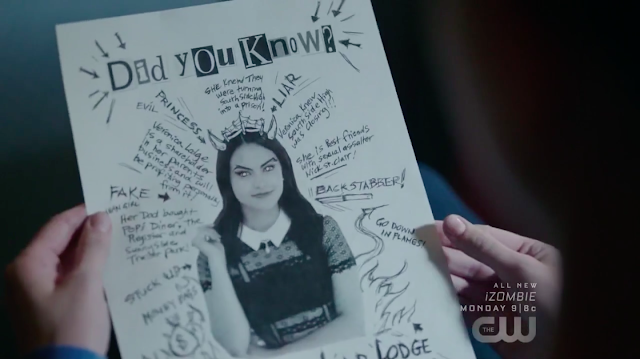 Did you Know?
She Knew They
were turning
Southside High
into a prison!
LIAR
Veronica Knew
Southside High
was closing!?!
EVIL
PRINCESS
Veronica Lodge
is a shareholder
in her parents
business and will
be profiting personally
from it!
She is Best friends
with sexual assaulter
Nick St. Clair!
BACKSTABBER!
FAKE
Her Dad bought
Pop's Diner, The
Register and
Sunnyside
Trailer Park!
GO DOWN
IN FLAMES!
STUCK UP
MONEY BAGS
LODGE
ALL NEW
iZOMBIE
MONDAY 9|8c
THE CW